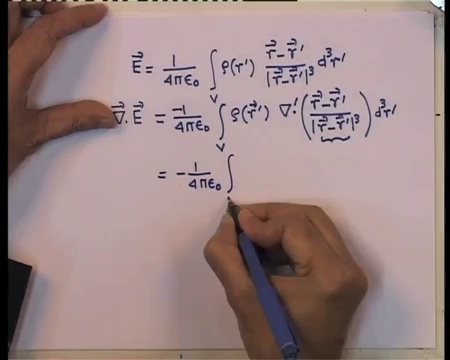 E⃗ = 1/4πε₀ ∫_V ρ(r') (r⃗-r⃗')/|r⃗-r⃗'|³ d³r'
∇⃗·E⃗ = -1/4πε₀ ∫_V ρ(r⃗') ∇'·((r⃗-r⃗')/|r⃗-r⃗'|³) d³r'
= -1/4πε₀ ∫